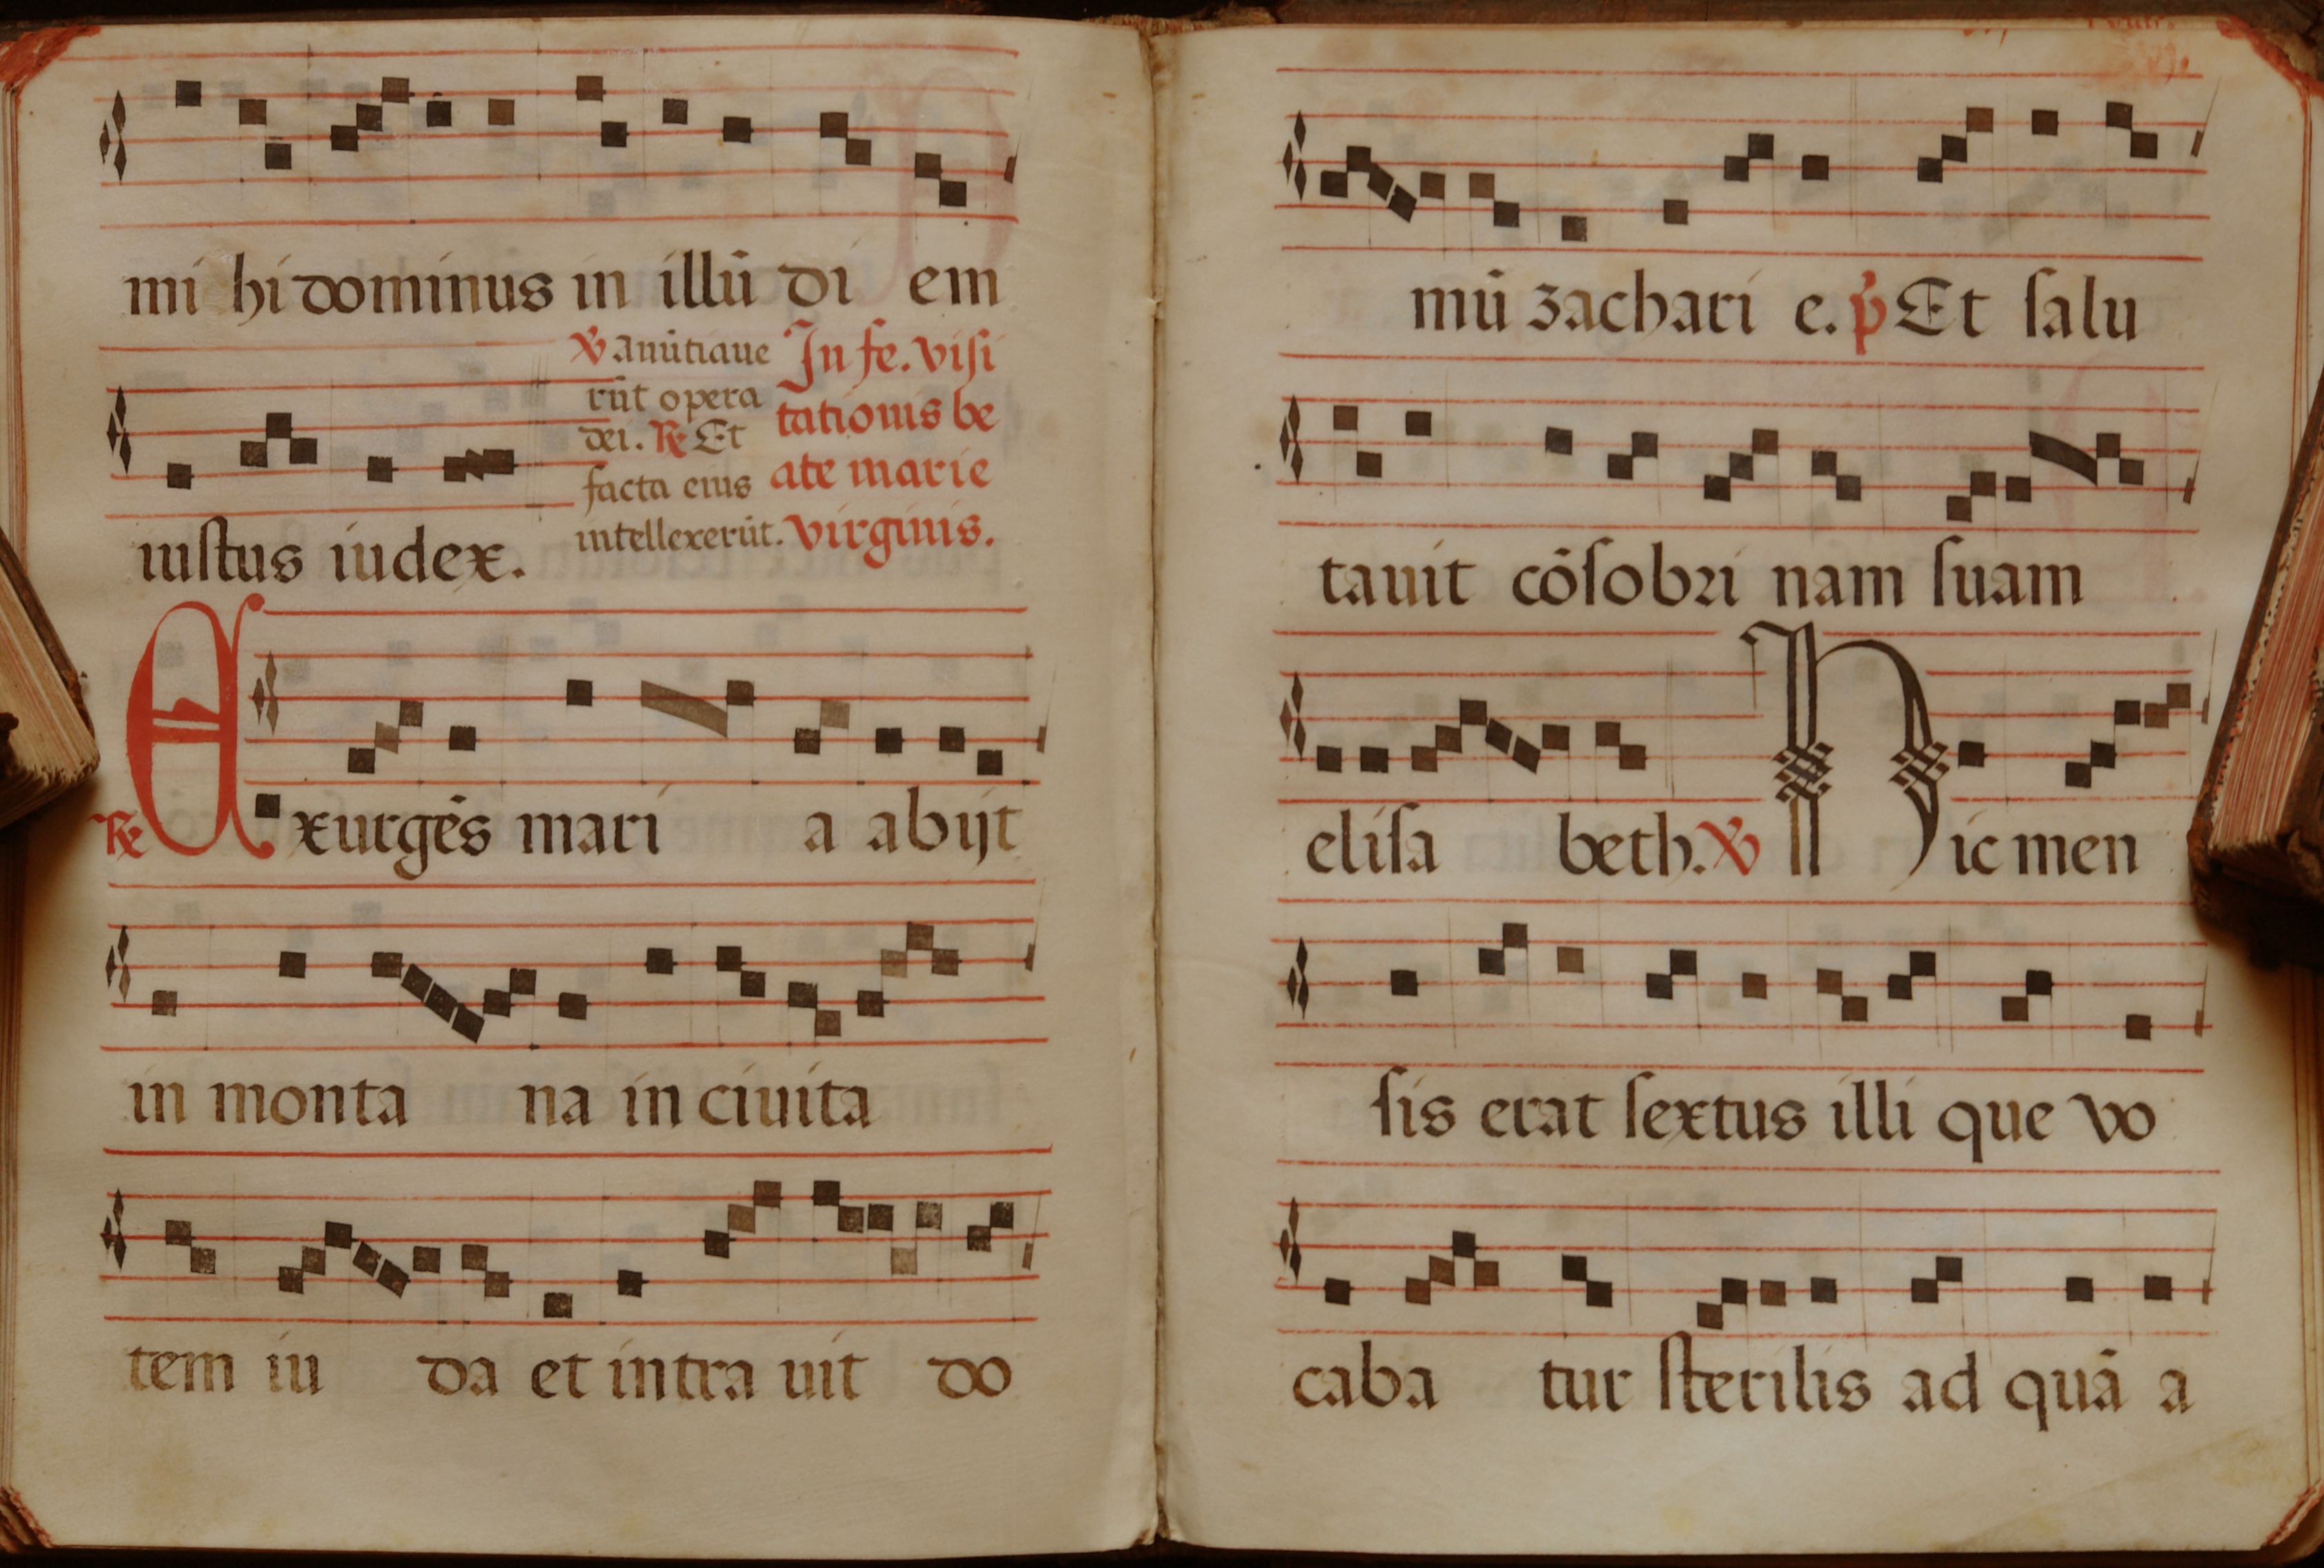 mi hi dominus in illū di em
iustus iudex.
℣ Anūtiaue
rūt opera
dei. ℟ Et
facta eius
intellexerūt.
In fe. visi
tationis be
ate marie
virginis.
℟ Exurgēs mari a abijt
in monta na in ciuita
tem iu da et intra uit do
mū zachari e. p̄ Et salu
tauit cōsobri nam suam
elisa beth. ℣ Hic men
sis erat sextus illi que vo
caba tur sterilis ad quā a